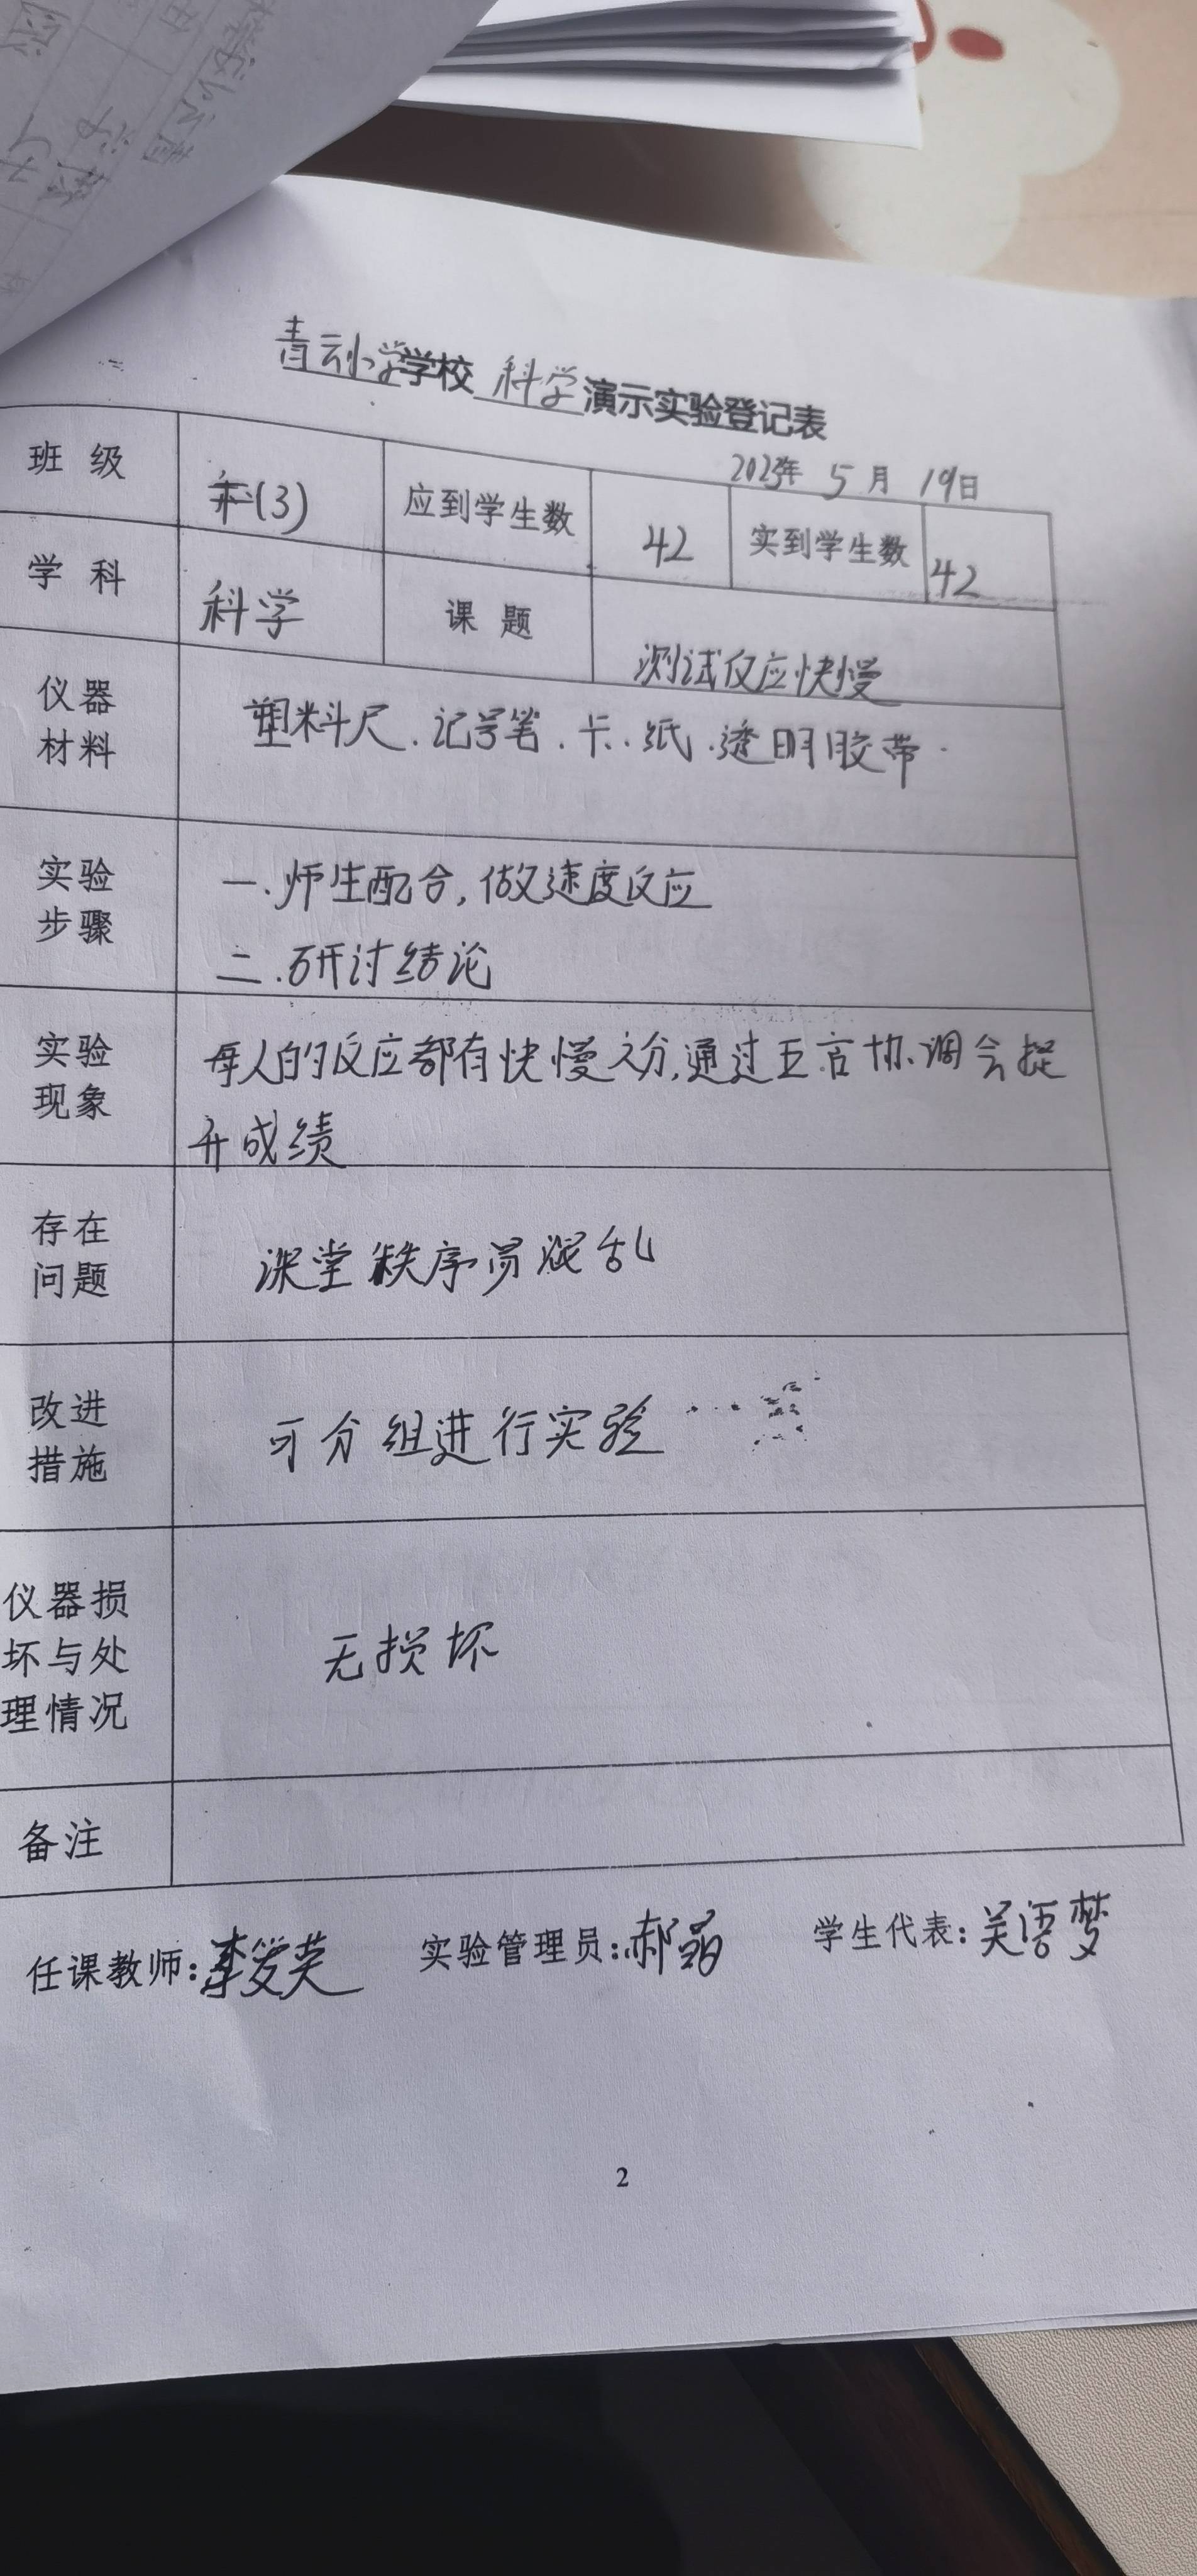 青云小学学校 科学 演示实验登记表
2023年 5月 19日
班 级 (3) 应到学生数 42 实到学生数 42
学 科 科学 课 题 测试反应快慢
仪器材料 塑料尺.记号笔.卡.纸.透明胶带.
实验步骤 一.师生配合,做速度反应
二.研讨结论
实验现象 每人的反应都有快慢之分,通过五官协调会提
升成绩
存在问题 课堂秩序易混乱
改进措施 可分组进行实验
仪器损坏与处理情况 无损坏
备注
任课教师:李爱英 实验管理员:郝 学生代表:吴语梦
2